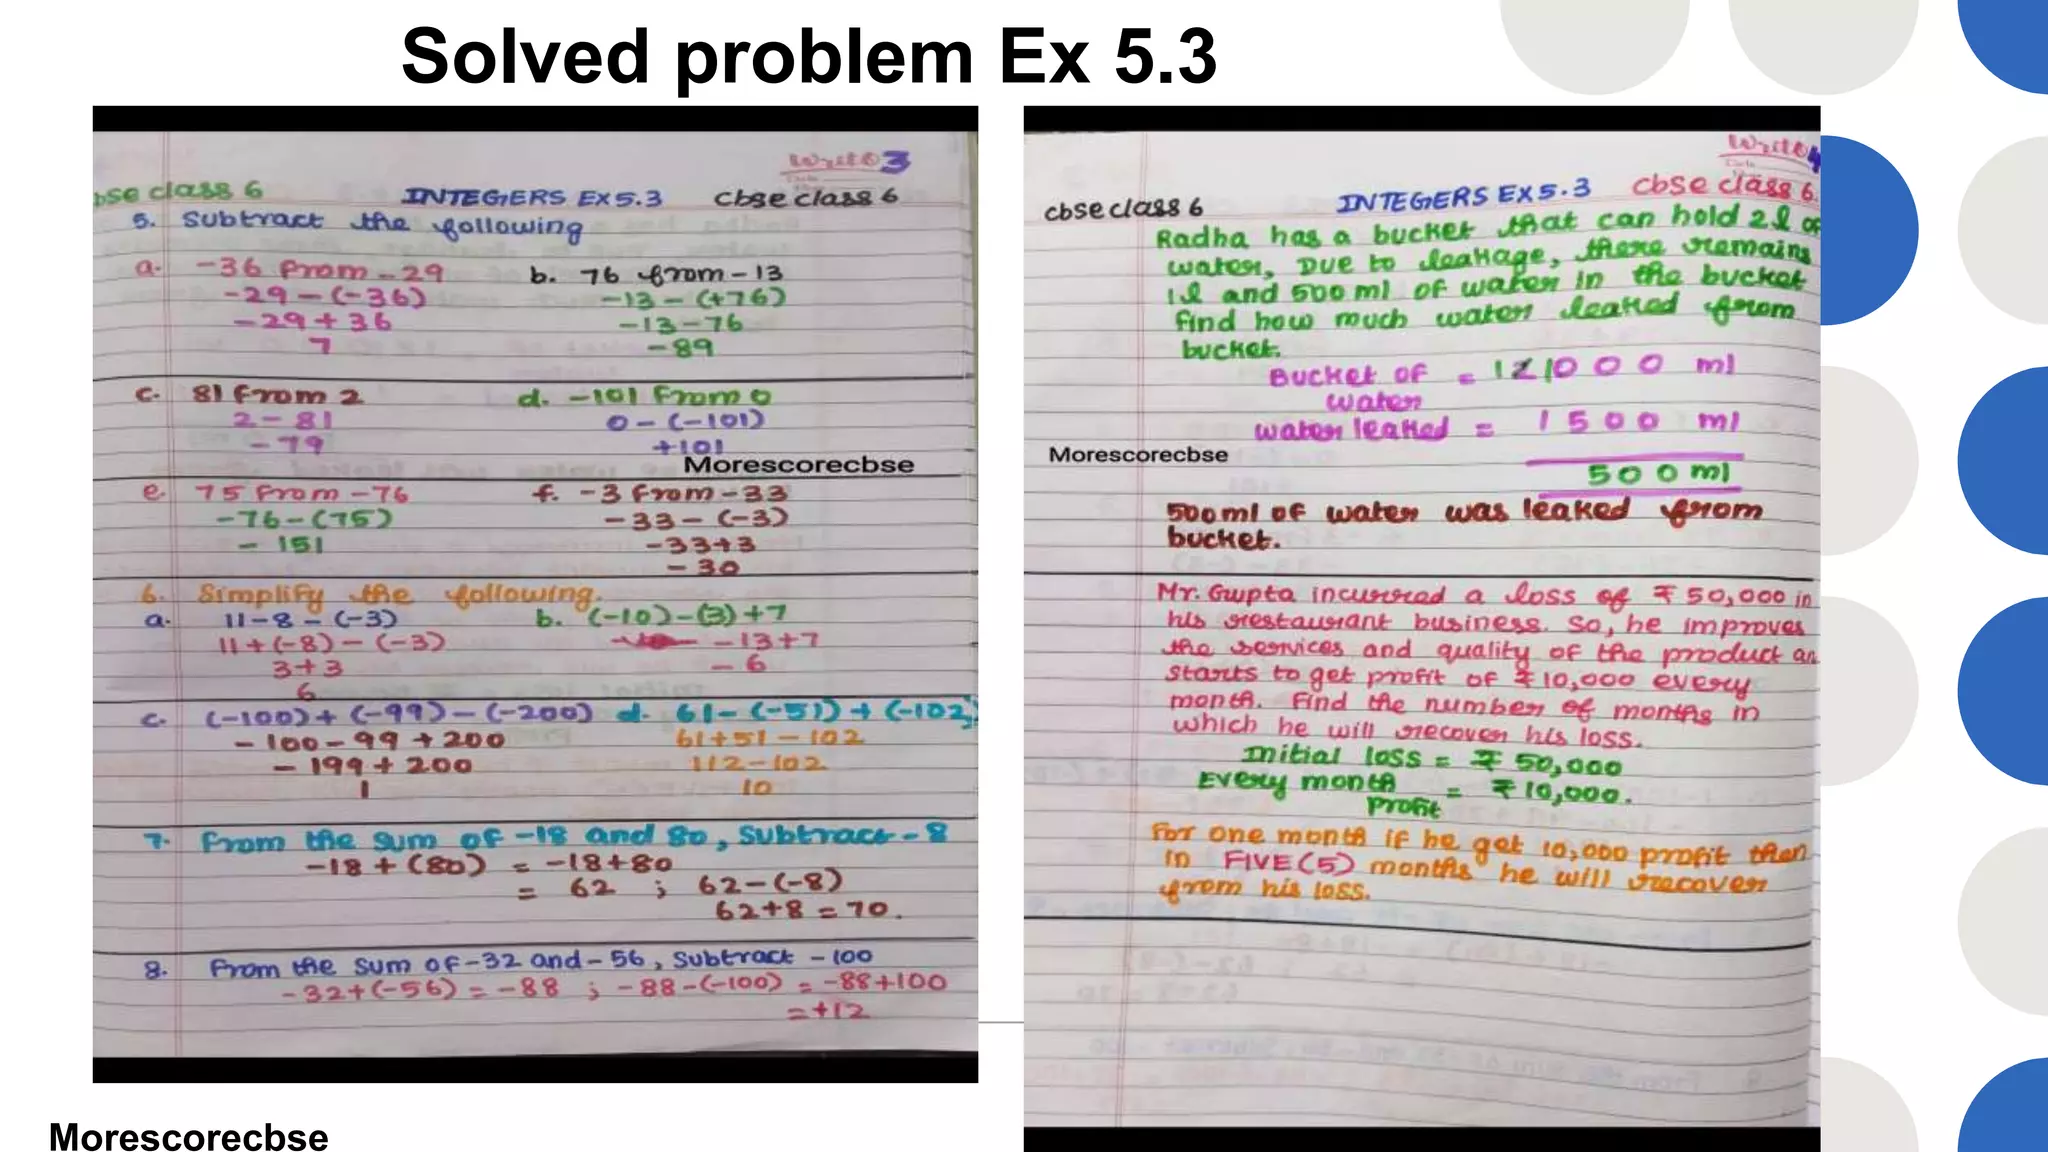 Solved problem Ex 5.3
Write 3
bse class 6 INTEGERS EX5.3 cbse class 6
5. Subtract the following
a. -36 from -29 b. 76 from -13
-29-(-36) -13-(+76)
-29+36 -13-76
7 -89
c. 81 from 2 d. -101 from 0
2-81 0-(-101)
-79 +101
Morescorecbse
e. 75 from -76 f. -3 from -33
-76-(75) -33-(-3)
-151 -33+3
-30
6. Simplify the following.
a. 11-8-(-3) b. (-10)-(3)+7
11+(-8)-(-3) -13+7
3+3 -6
6
c. (-100)+(-99)-(-200) d. 61-(-51)+(-102)
-100-99+200 61+51-102
-199+200 112-102
1 10
7. From the sum of -18 and 80, subtract -8
-18+(80) = -18+80
= 62 ; 62-(-8)
62+8=70.
8. From the sum of -32 and -56, subtract -100
-32+(-56) = -88 ; -88-(-100) = -88+100
=+12
Write 4
cbse class 6 INTEGERS EX5.3 cbse class 6.
Radha has a bucket that can hold 2l of
water, Due to leakage, there remains
1l and 500 ml of water in the bucket
find how much water leaked from
bucket.
Bucket of = 1000 ml
water
water leaked = 1500 ml
Morescorecbse
500ml
500ml of water was leaked from
bucket.
Mr. Gupta incurred a loss of ₹50,000 in
his restaurant business. So, he improves
the services and quality of the product an
starts to get profit of ₹10,000 every
month. Find the number of months in
which he will recover his loss.
Initial loss = ₹50,000
Every month = ₹10,000.
Profit
For one month if he get 10,000 profit then
in FIVE(5) months he will recover
from his loss.
Morescorecbse